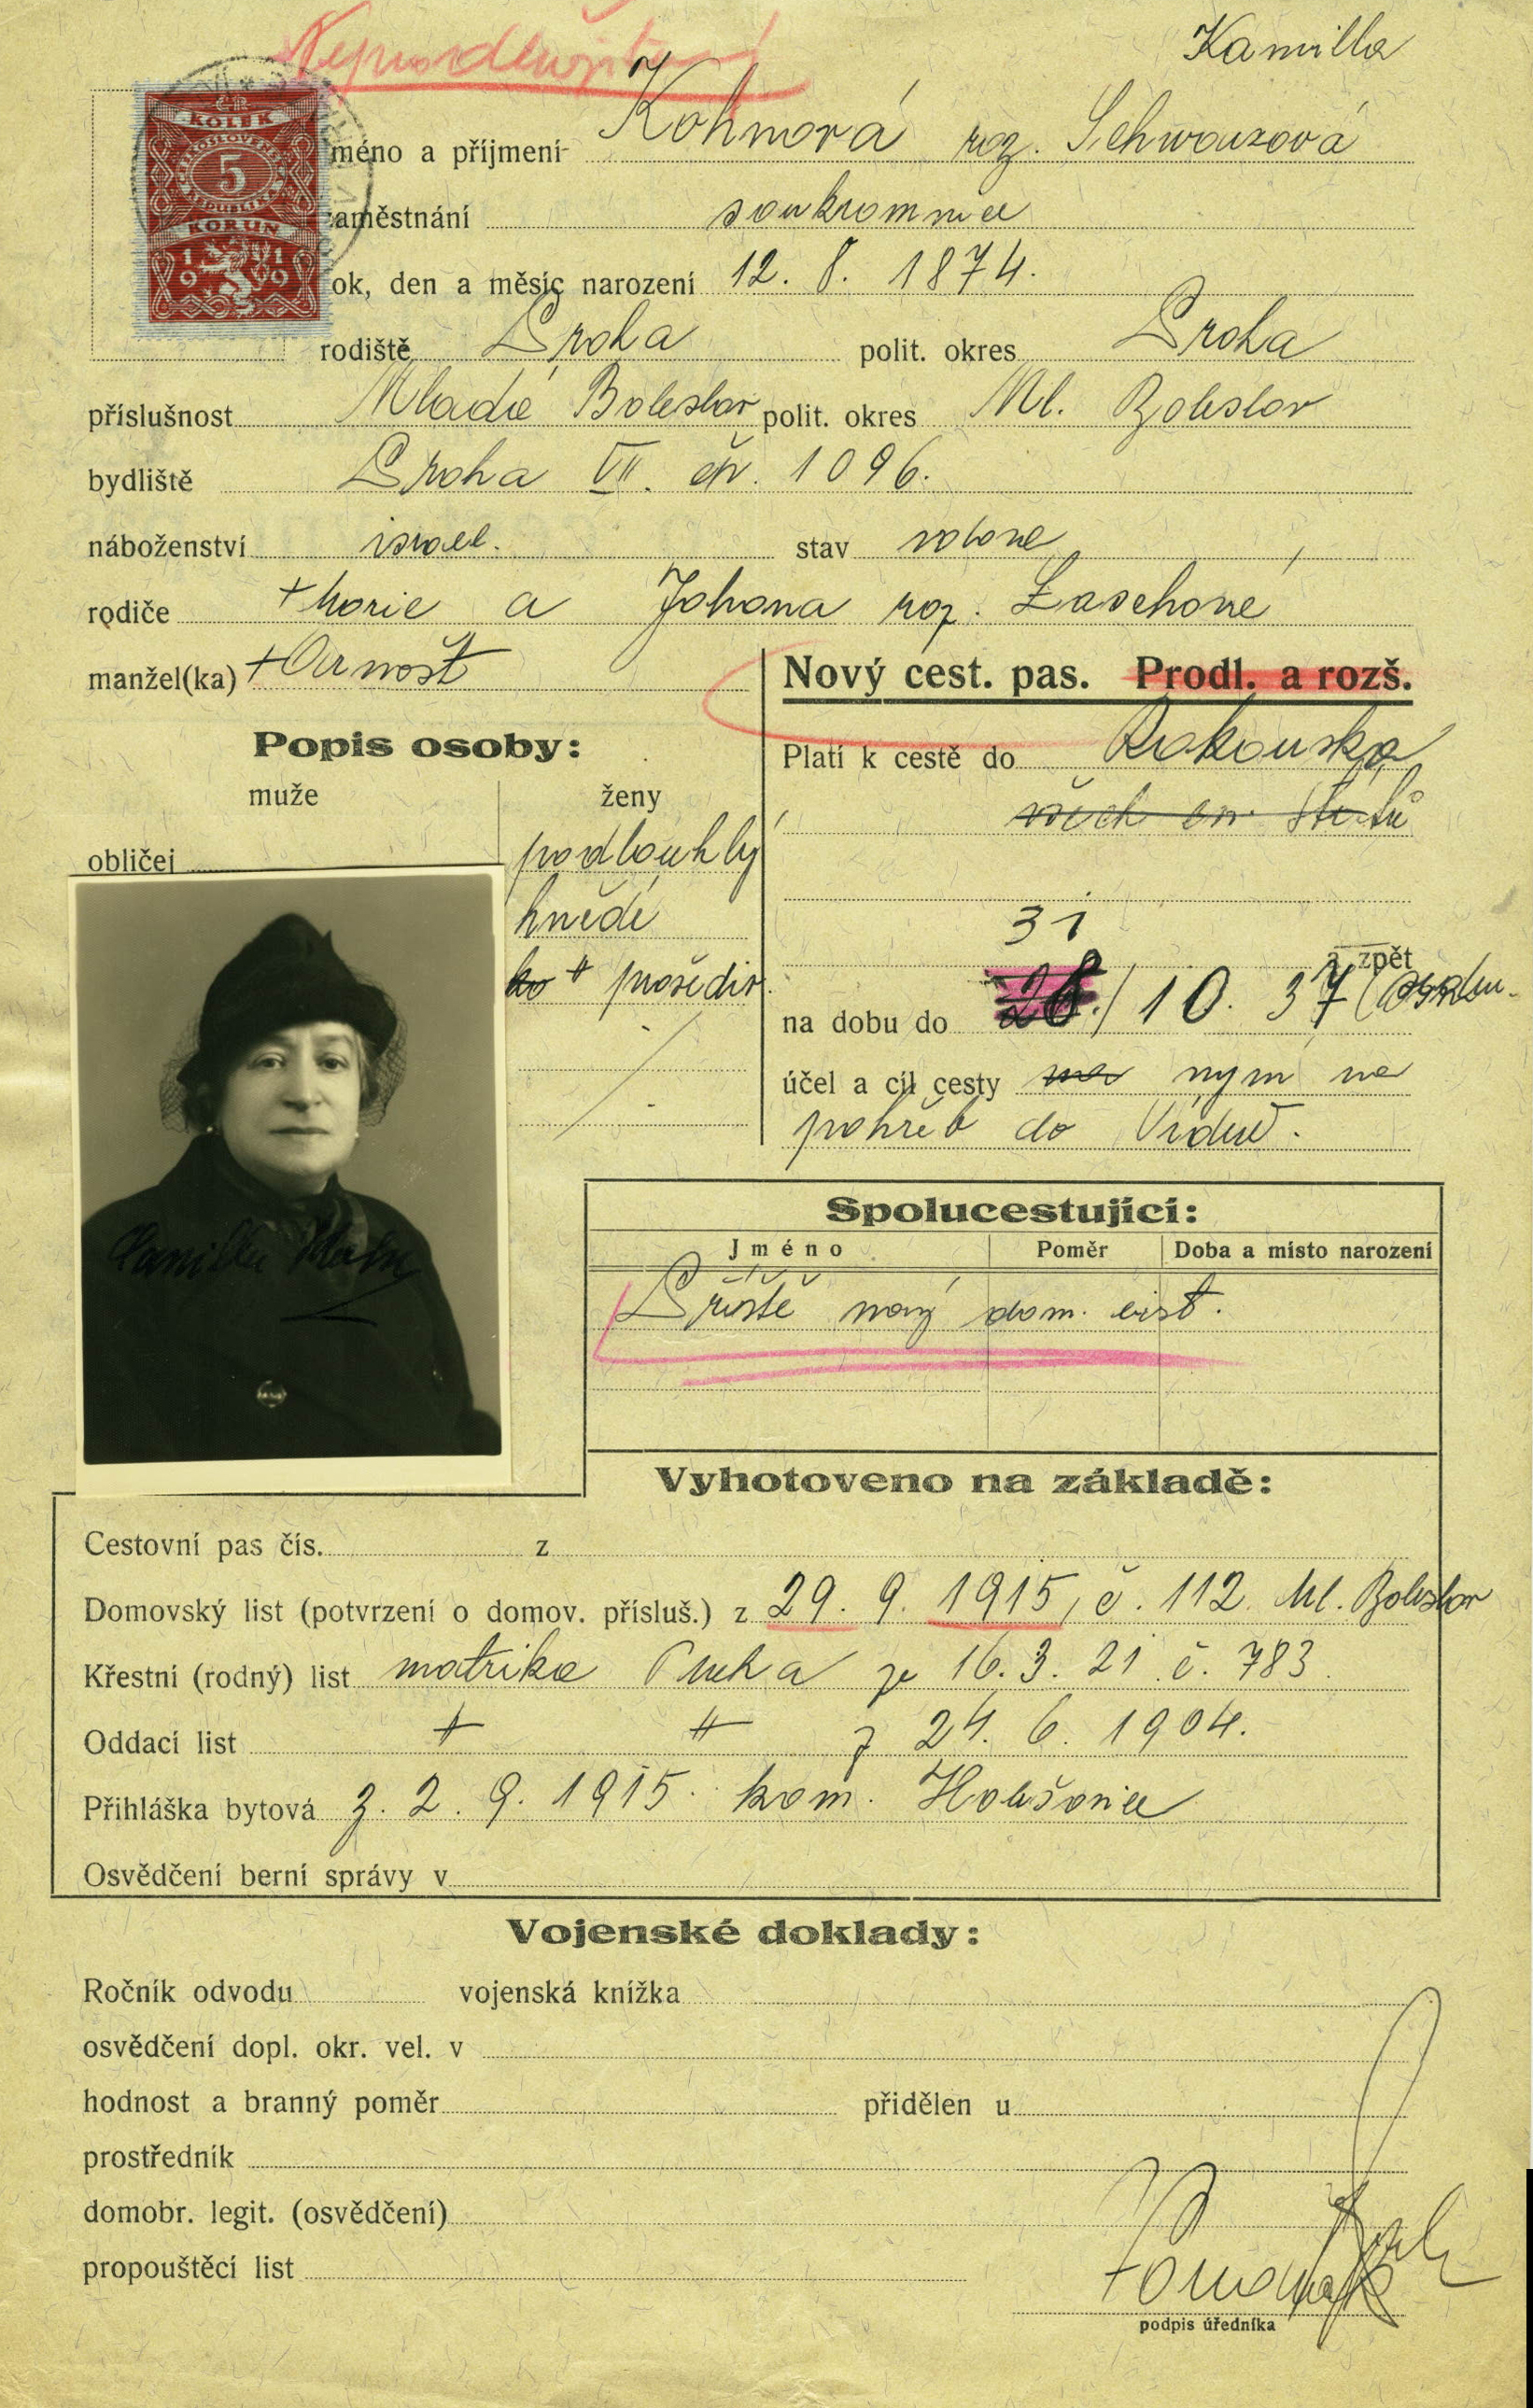 Kamilla
ČR
KOLEK
5
KORUN
1919
méno a příjmení Kohnová roz. Schwarzová
aměstnání soukromnice
ok, den a měsíc narození 12. 8. 1874.
rodiště Praha polit. okres Praha
příslušnost Mladá Boleslav polit. okres Ml. Boleslav
bydliště Praha VII. čp. 1096.
náboženství israel. stav
rodiče + a Johana roz.
manžel(ka) + Arnošt
Nový cest. pas. Prodl. a rozš.
Popis osoby:
Platí k cestě do Rakouska
muže ženy
všech ev. států
obličej podlouhlý
hnědé
31
prošediv.
a zpět
na dobu do 28./10. 37
účel a cíl cesty na
pohřeb do Vídně.
Spolucestující:
Jméno Poměr Doba a místo narození
Příště nový dom. list.
Vyhotoveno na základě:
Cestovní pas čís. z
Domovský list (potvrzení o domov. přísluš.) z 29. 9. 1915, č. 112 Ml. Boleslav
Křestní (rodný) list matrika Praha ze 16. 3. 21 č. 783
Oddací list z 24. 6. 1904.
Přihláška bytová z. 2. 9. 1915. kom. Holešovice
Osvědčení berní správy v
Vojenské doklady:
Ročník odvodu vojenská knížka
osvědčení dopl. okr. vel. v
hodnost a branný poměr přidělen u
prostředník
domobr. legit. (osvědčení)
propouštěcí list
podpis úředníka